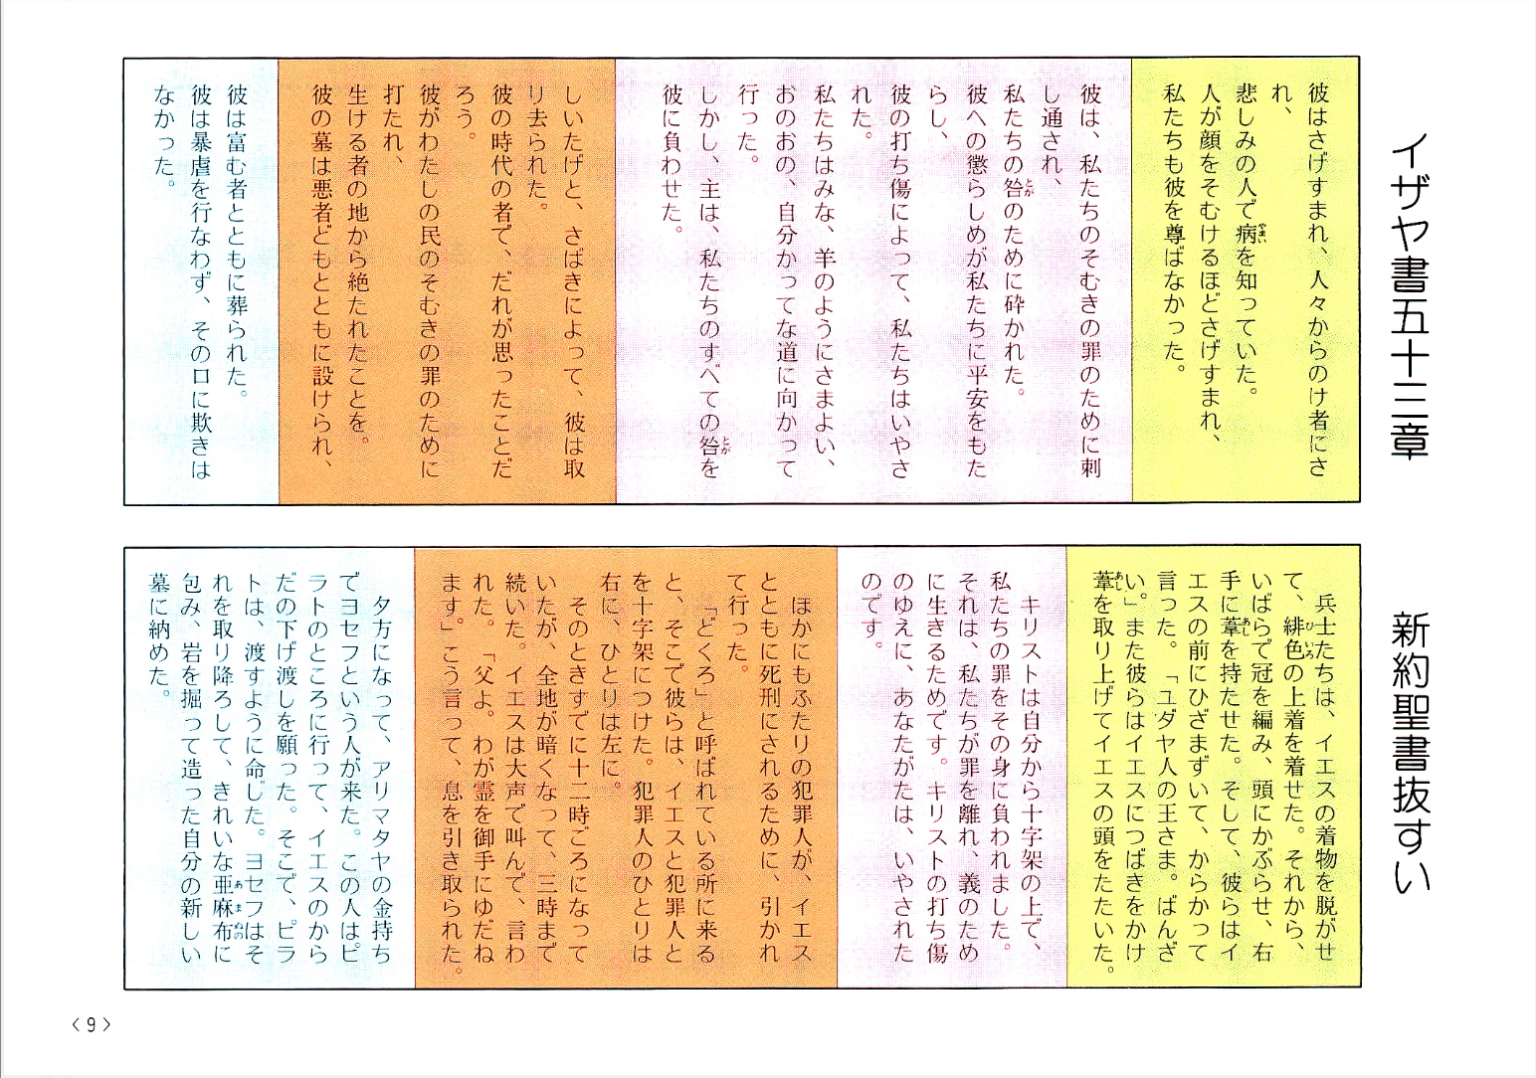 イザヤ書五十三章
彼はさげすまれ、人々からのけ者にさ
れ、
悲しみの人で病を知っていた。
人が顔をそむけるほどさげすまれ、
私たちも彼を尊ばなかった。
彼は、私たちのそむきの罪のために刺
し通され、
私たちの咎のために砕かれた。
彼への懲らしめが私たちに平安をもた
らし、
彼の打ち傷によって、私たちはいやさ
れた。
私たちはみな、羊のようにさまよい、
おのおの、自分かってな道に向かって
行った。
しかし、主は、私たちのすべての咎を
彼に負わせた。
しいたげと、さばきによって、彼は取
り去られた。
彼の時代の者で、だれが思ったことだ
ろう。
彼がわたしの民のそむきの罪のために
打たれ、
生ける者の地から絶たれたことを。
彼の墓は悪者どもとともに設けられ、
彼は富む者とともに葬られた。
彼は暴虐を行なわず、その口に欺きは
なかった。
新約聖書抜すい
兵士たちは、イエスの着物を脱がせ
て、緋色の上着を着せた。それから、
いばらで冠を編み、頭にかぶらせ、右
手に葦を持たせた。そして、彼らはイ
エスの前にひざまずいて、からかって
言った。「ユダヤ人の王さま。ばんざ
い。」また彼らはイエスにつばきをかけ
葦を取り上げてイエスの頭をたたいた。
キリストは自分から十字架の上で、
私たちの罪をその身に負われました。
それは、私たちが罪を離れ、義のため
に生きるためです。キリストの打ち傷
のゆえに、あなたがたは、いやされた
のです。
ほかにもふたりの犯罪人が、イエス
とともに死刑にされるために、引かれ
て行った。
「どくろ」と呼ばれている所に来る
と、そこで彼らは、イエスと犯罪人と
を十字架につけた。犯罪人のひとりは
右に、ひとりは左に。
そのときすでに十二時ごろになって
いたが、全地が暗くなって、三時まで
続いた。イエスは大声で叫んで、言わ
れた。「父よ。わが霊を御手にゆだね
ます。」こう言って、息を引き取られた。
夕方になって、アリマタヤの金持ち
でヨセフという人が来た。この人はピ
ラトのところに行って、イエスのから
だの下げ渡しを願った。そこで、ピラ
トは、渡すように命じた。ヨセフはそ
れを取り降ろして、きれいな亜麻布に
包み、岩を掘って造った自分の新しい
墓に納めた。
〈9〉